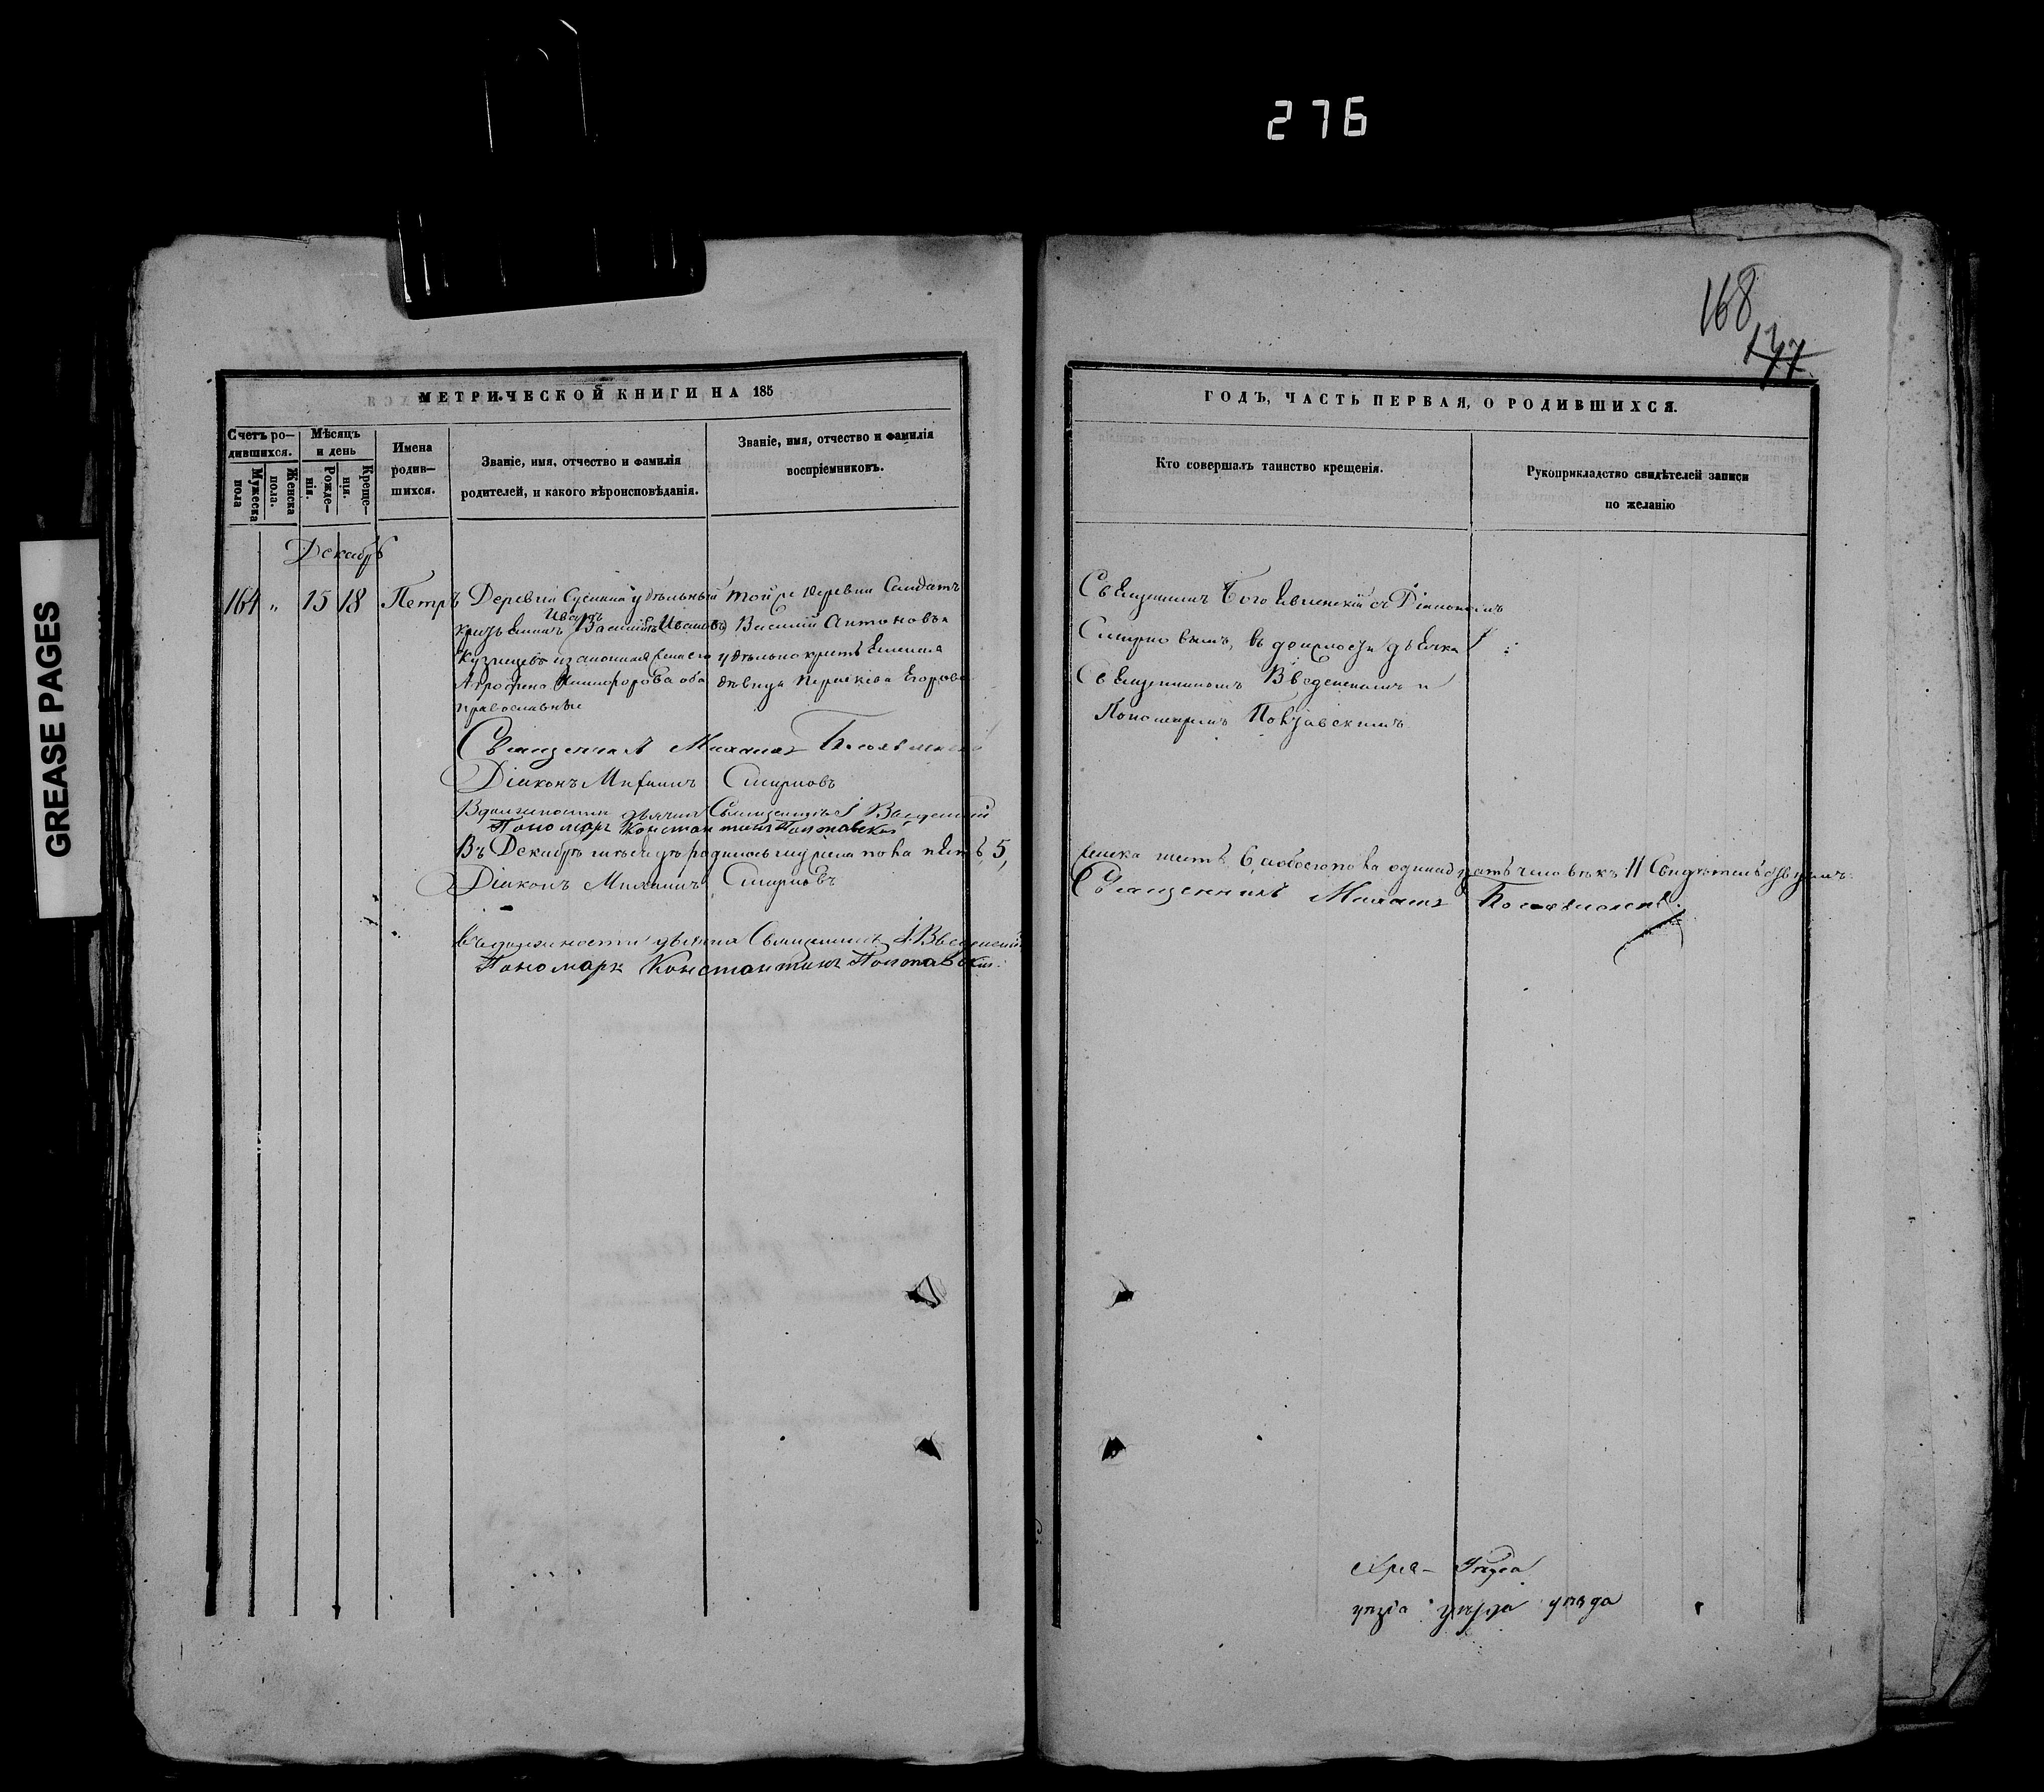 276
GREASE PAGES
168
177
МЕТРИЧЕСКОЙ КНИГИ НА 185
Счетъ ро-
дившихся.
Мужеска
пола
Женска
пола.
Мѣсяцъ
и день
Рожде-
нія.
Креще-
нія.
Имена
родив-
шихся.
Званіе, имя, отчество и фамилія
родителей, и какого вѣроисповѣданія.
Званіе, имя, отчество и фамилія
воспріемниковъ.
Декабрь
164 " 15 18 Петръ
Деревни удѣльный
Иванъ
Василій Ивановъ
Кузнецовъ и законная жена его
Никифорова оба
православные
тойже деревни Солдатъ
Василій Антоновъ и
удѣльнокрест
дѣвица Егорова
Священникъ Михаилъ Богоявленскій
Діаконъ Михаилъ Смирновъ
В должности дьячка Священникъ І Введенскій
Пономарь Константинъ Полтавскій
Въ Декабрѣ мѣсяцѣ родилось мужеска пола пять 5,
Діаконъ Михаилъ Смирновъ
въ должности дьячка Священникъ І Введенскій
Пономарь Константинъ Полтавскій
ГОДЪ, ЧАСТЬ ПЕРВАЯ, О РОДИВШИХСЯ.
Кто совершалъ таинство крещенія.
Рукоприкладство свидѣтелей записи
по желанію
Священникъ Богоявленскій съ Діакономъ
Смирновымъ, въ должности дьячка
Священникомъ Введенскимъ и
Пономаремъ Полтавскимъ
женска шесть 6, обоего пола одинадцать человѣкъ 11
Священникъ Михаилъ Богоявленскій